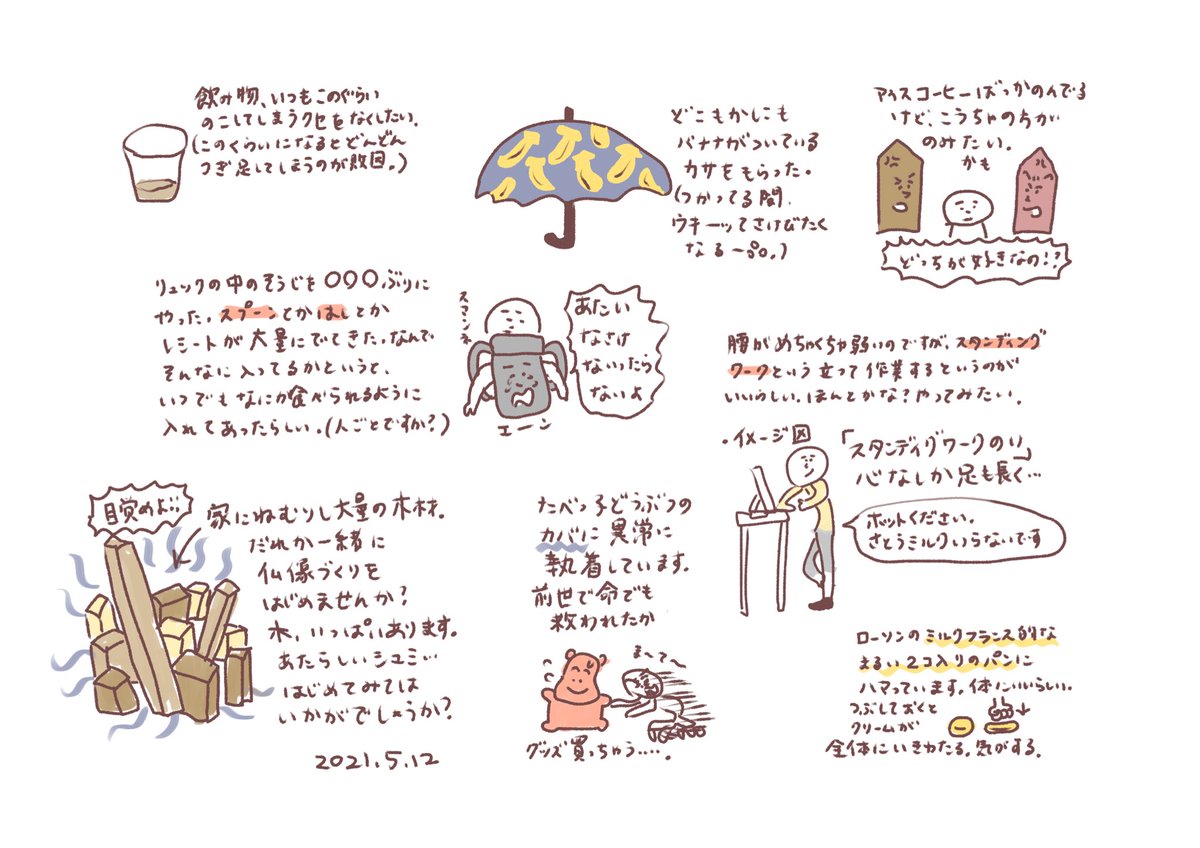 飲み物、いつもこのぐらい
のこしてしまうクセをなくしたい。
(このくらいになるとどんどん
つぎ足してしまうのが敗因。)
どこもかしこも
バナナがついている
カサをもらった。
(つかってる間、
ウキーッてさけびたく
なるーっ。)
アイスコーヒーばっかのんでる
けど、こうちゃの方が
のみたい。
かも
どっちが好きなの!?
リュックの中のそうじを〇〇〇ぶりに
やった。スプーンとかはしとか
レシートが大量にでてきた。なんで
そんなに入ってるかというと、
いつでもなにか食べられるように
入れてあったらしい。(人ごとですか?)
スマンネ
あたい
なさけ
ないったら
ないよ
エーン
腰がめちゃくちゃ弱いのですが、スタンディング
ワークという立って作業するというのが
いいらしい。ほんとかな?やってみたい。
・イメージ図
「スタンディグワークのり」
心なしか足も長く…
ホットください。
さとうミルクいらないです
目覚めよ…
家にねむりし大量の木材。
だれか一緒に
仏像づくりを
はじめませんか?
木、いっぱいあります。
あたらしいシュミ…
はじめてみては
いかがでしょうか?
2021.5.12
たべっ子どうぶつの
カバに異常に
執着しています。
前世で命でも
救われたか
ま〜て〜
グッズ買っちゃう....
ローソンのミルクフランス的な
まるい2コ入りのパンに
ハマっています。体にいいらしい。
つぶしておくと
クリームが
全体にいきわたる。気がする。